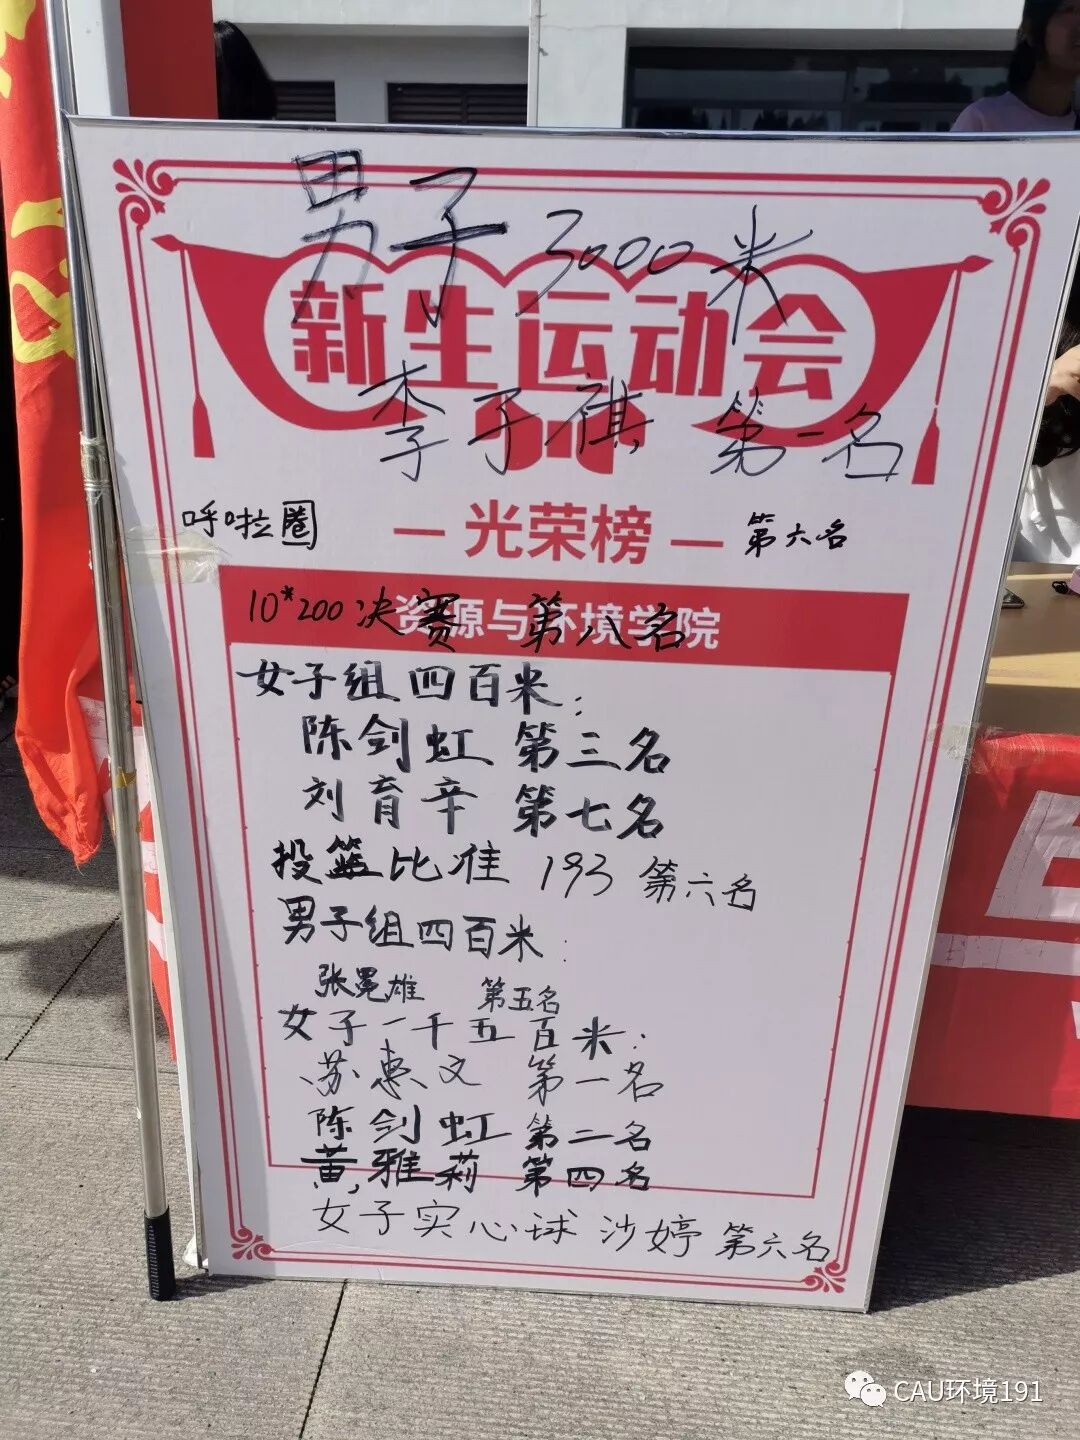 男子 3000米
新生运动会
李子祺 第一名
呼啦圈
光荣榜
第六名
10*200决赛 第八名
资源与环境学院
女子组四百米:
陈剑虹 第三名
刘育辛 第七名
投篮比准 193 第六名
男子组四百米:
张冕雄 第五名
女子一千五百米:
苏惠文 第一名
陈剑虹 第二名
黄雅莉 第四名
女子实心球 沙婷 第六名
CAU环境191